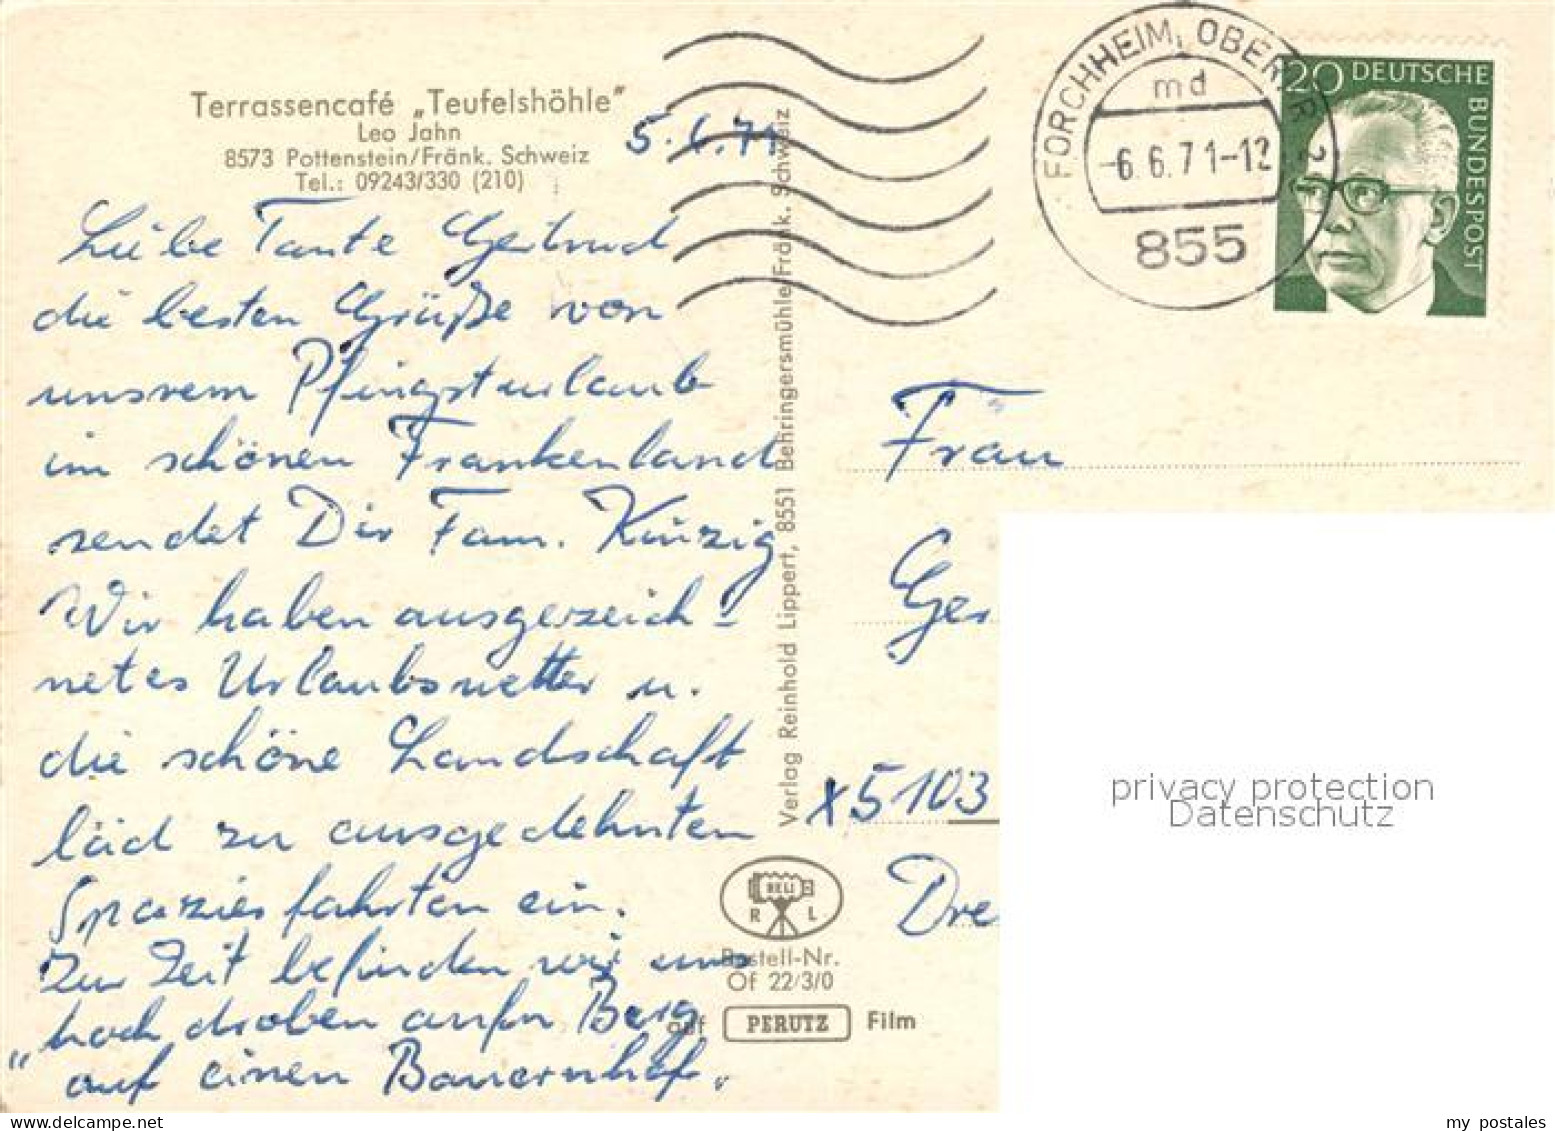 Terrassencafé „Teufelshöhle"
Leo Jahn
8573 Pottenstein/Fränk. Schweiz
Tel.: 09243/330 (210)
5.6.71
Liebe Tante Gertrud
die besten Grüße von
unsrem Pfingsturlaub
im schönen Frankenland
sendet Dir Fam. Künzig
Wir haben ausgezeich-
netes Urlaubswetter u.
die schöne Landschaft
läd zu ausgedehnten
Spazierfahrten ein.
Zur Zeit befinden wir uns
"hoch droben auf'm Berg
auf einen Bauernhof.
Verlag Reinhold Lippert, 8551 Behringersmühle/Fränk. Schweiz
FORCHHEIM, OBERFR 2
md
-6.6.71-12
855
20 DEUTSCHE BUNDESPOST
Frau
Ger
x5103
Dre
BELI
R L
Bestell-Nr.
Of 22/3/0
auf PERUTZ Film
privacy protection
Datenschutz
my postales